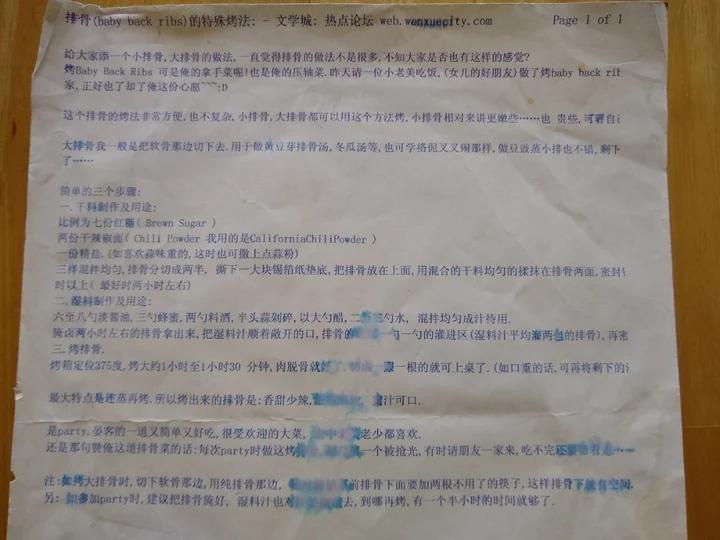 排骨(baby back ribs)的特殊烤法: - 文学城: 热点论坛 web.wenxuecity.com Page 1 of 1
给大家添一个小排骨,大排骨的做法,一直觉得排骨的做法不是很多,不知大家是否也有这样的感觉?
烤Baby Back Ribs 可是俺的拿手菜呢!也是俺的压轴菜.昨天请一位小老美吃饭,(女儿的好朋友)做了烤baby back rib
家,正好也了却了俺这份心愿~~~:D
这个排骨的烤法非常方便,也不复杂,小排骨,大排骨都可以用这个方法烤,小排骨相对来讲更嫩些……也 贵些,可看自
大排骨我一般是把软骨那边切下去.用于做黄豆芽排骨汤,冬瓜汤等,也可学搭伲叉叉闹那样,做豆豉蒸小排也不错,剩下
了……
简单的三个步骤:
一.干料制作及用途:
比例为七份红糖( Brown Sugar )
两份干辣椒面( Chili Powder 我用的是CaliforniaChiliPowder )
一份精盐.(如喜欢蒜味重的,这时也可撒上点蒜粉)
三样混拌均匀,排骨分切成两半, 撕下一大块锡箔纸垫底,把排骨放在上面,用混合的干料均匀的揉抹在排骨两面,密封
时以上( 最好时两小时左右)
二.湿料制作及用途:
六至八勺淡酱油,三勺蜂蜜,两勺料酒,半头蒜剁碎,以大勺醋,二至三勺水, 混拌均匀成汁待用.
腌卤两小时左右的排骨拿出来,把湿料汁顺着敞开的口,排骨的 一勺一勺的灌进区(湿料汁平均灌两包的排骨),再密
三.烤排骨.
烤箱定位375度,烤大约1小时至1小时30 分钟,肉脱骨就 一根的就可上桌了.(如口重的话,可再将剩下的
最大特点是连蒸再烤.所以烤出来的排骨是:香甜少辣, 汁可口.
是party,宴客的一道又简单又好吃,很受欢迎的大菜, 老少都喜欢.
还是那句赞俺这道排骨菜的话:每次party时做这烤 一个被抢光,有时请朋友一家来,吃不完还要
注:如烤大排骨时,切下软骨那边,用纯排骨那边, 前排骨下面要加两根不用了的筷子,这样排骨下能有空间.
另: 如参加party时,建议把排骨腌好, 湿料汁也 去,到哪再烤,有一个半小时的时间就够了.